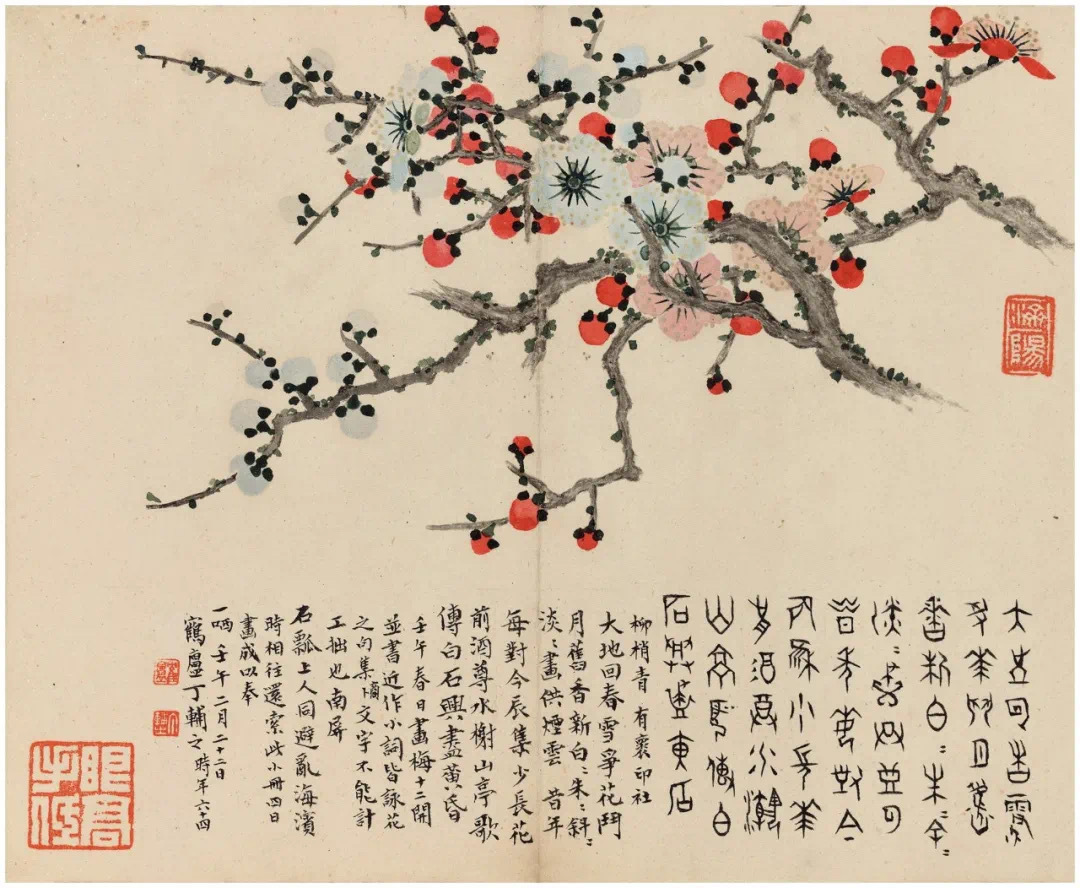 大地回春雪
爭花鬥月舊
香新白〻朱〻斜〻
淡〻畫供煙雲
昔年每對今
辰集少長花
前酒尊水榭
山亭歌傳白
石興盡黃昏
柳梢青 有褱印社
大地回春雪爭花鬥
月舊香新白〻朱〻斜〻
淡〻畫供煙雲 昔年
每對今辰集少長花
前酒尊水榭山亭歌
傳白石興盡黃昏
壬午春日畫梅十二開
並書近作小詞皆詠花
之句集商文字不能計
工拙也南屏
石瓢上人同避亂海濱
時相往還索此小冊四日
畫成以奉
一哂 壬午二月二十二日
鶴廬丁輔之時年六十四
漁陽
眼高手低